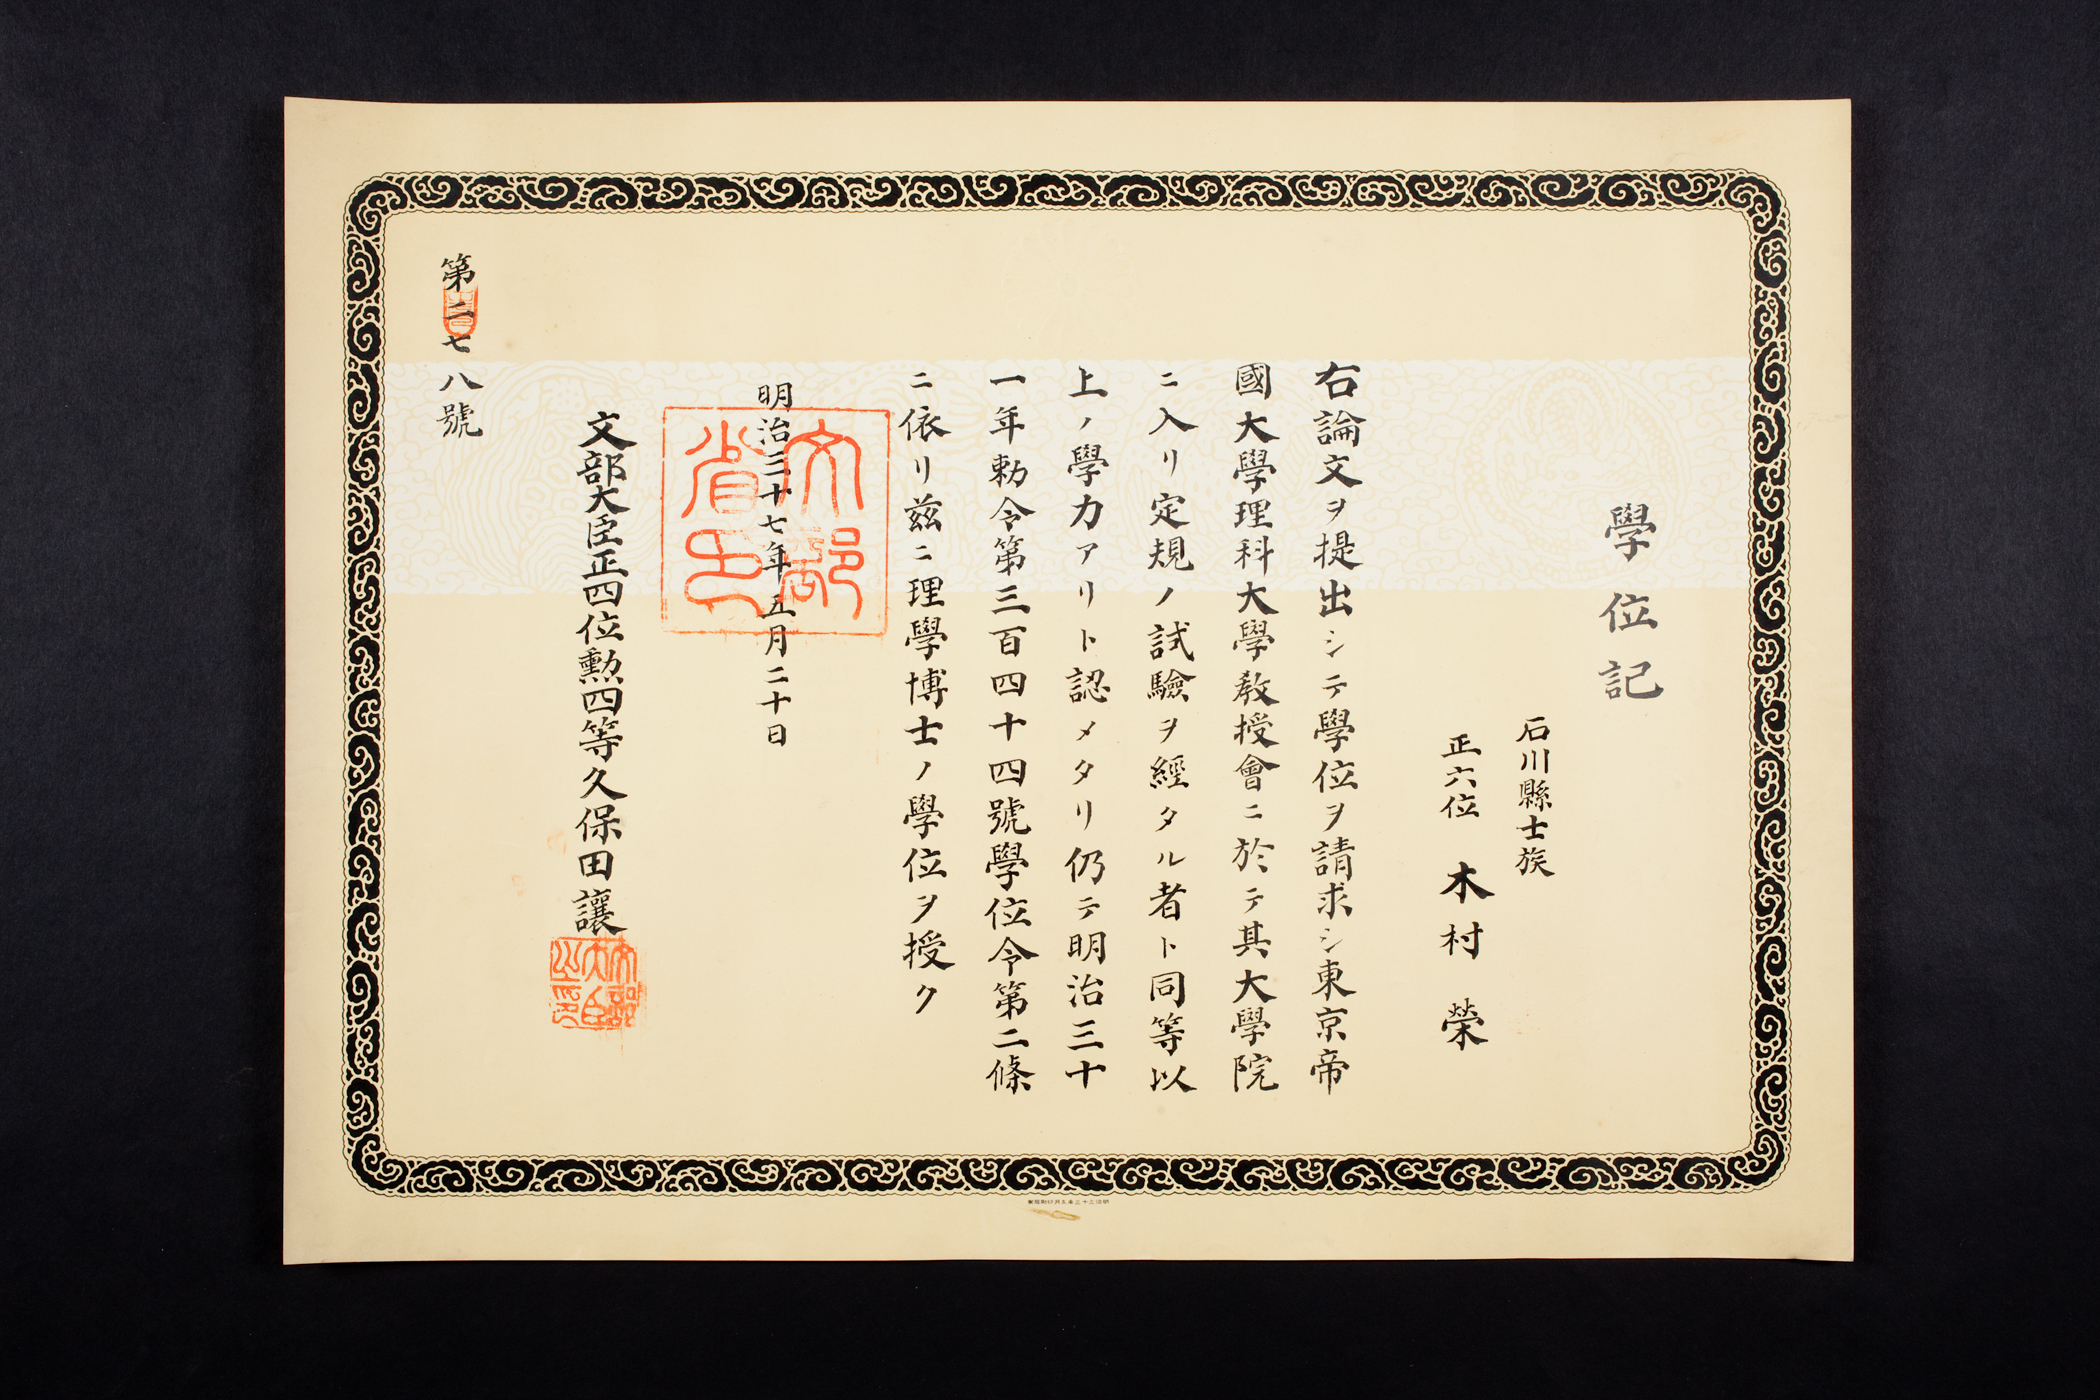 學位記
石川縣士族
正六位 木村 榮
右論文ヲ提出シテ學位ヲ請求シ東京帝
國大學理科大學教授會ニ於テ其大學院
ニ入リ定規ノ試驗ヲ經タル者ト同等以
上ノ學力アリト認メタリ仍テ明治三十
一年勅令第三百四十四號學位令第二條
ニ依リ茲ニ理學博士ノ學位ヲ授ク
明治三十七年五月二十日
文部省印
文部大臣正四位勲四等久保田讓
文部大臣之印
第二七八號